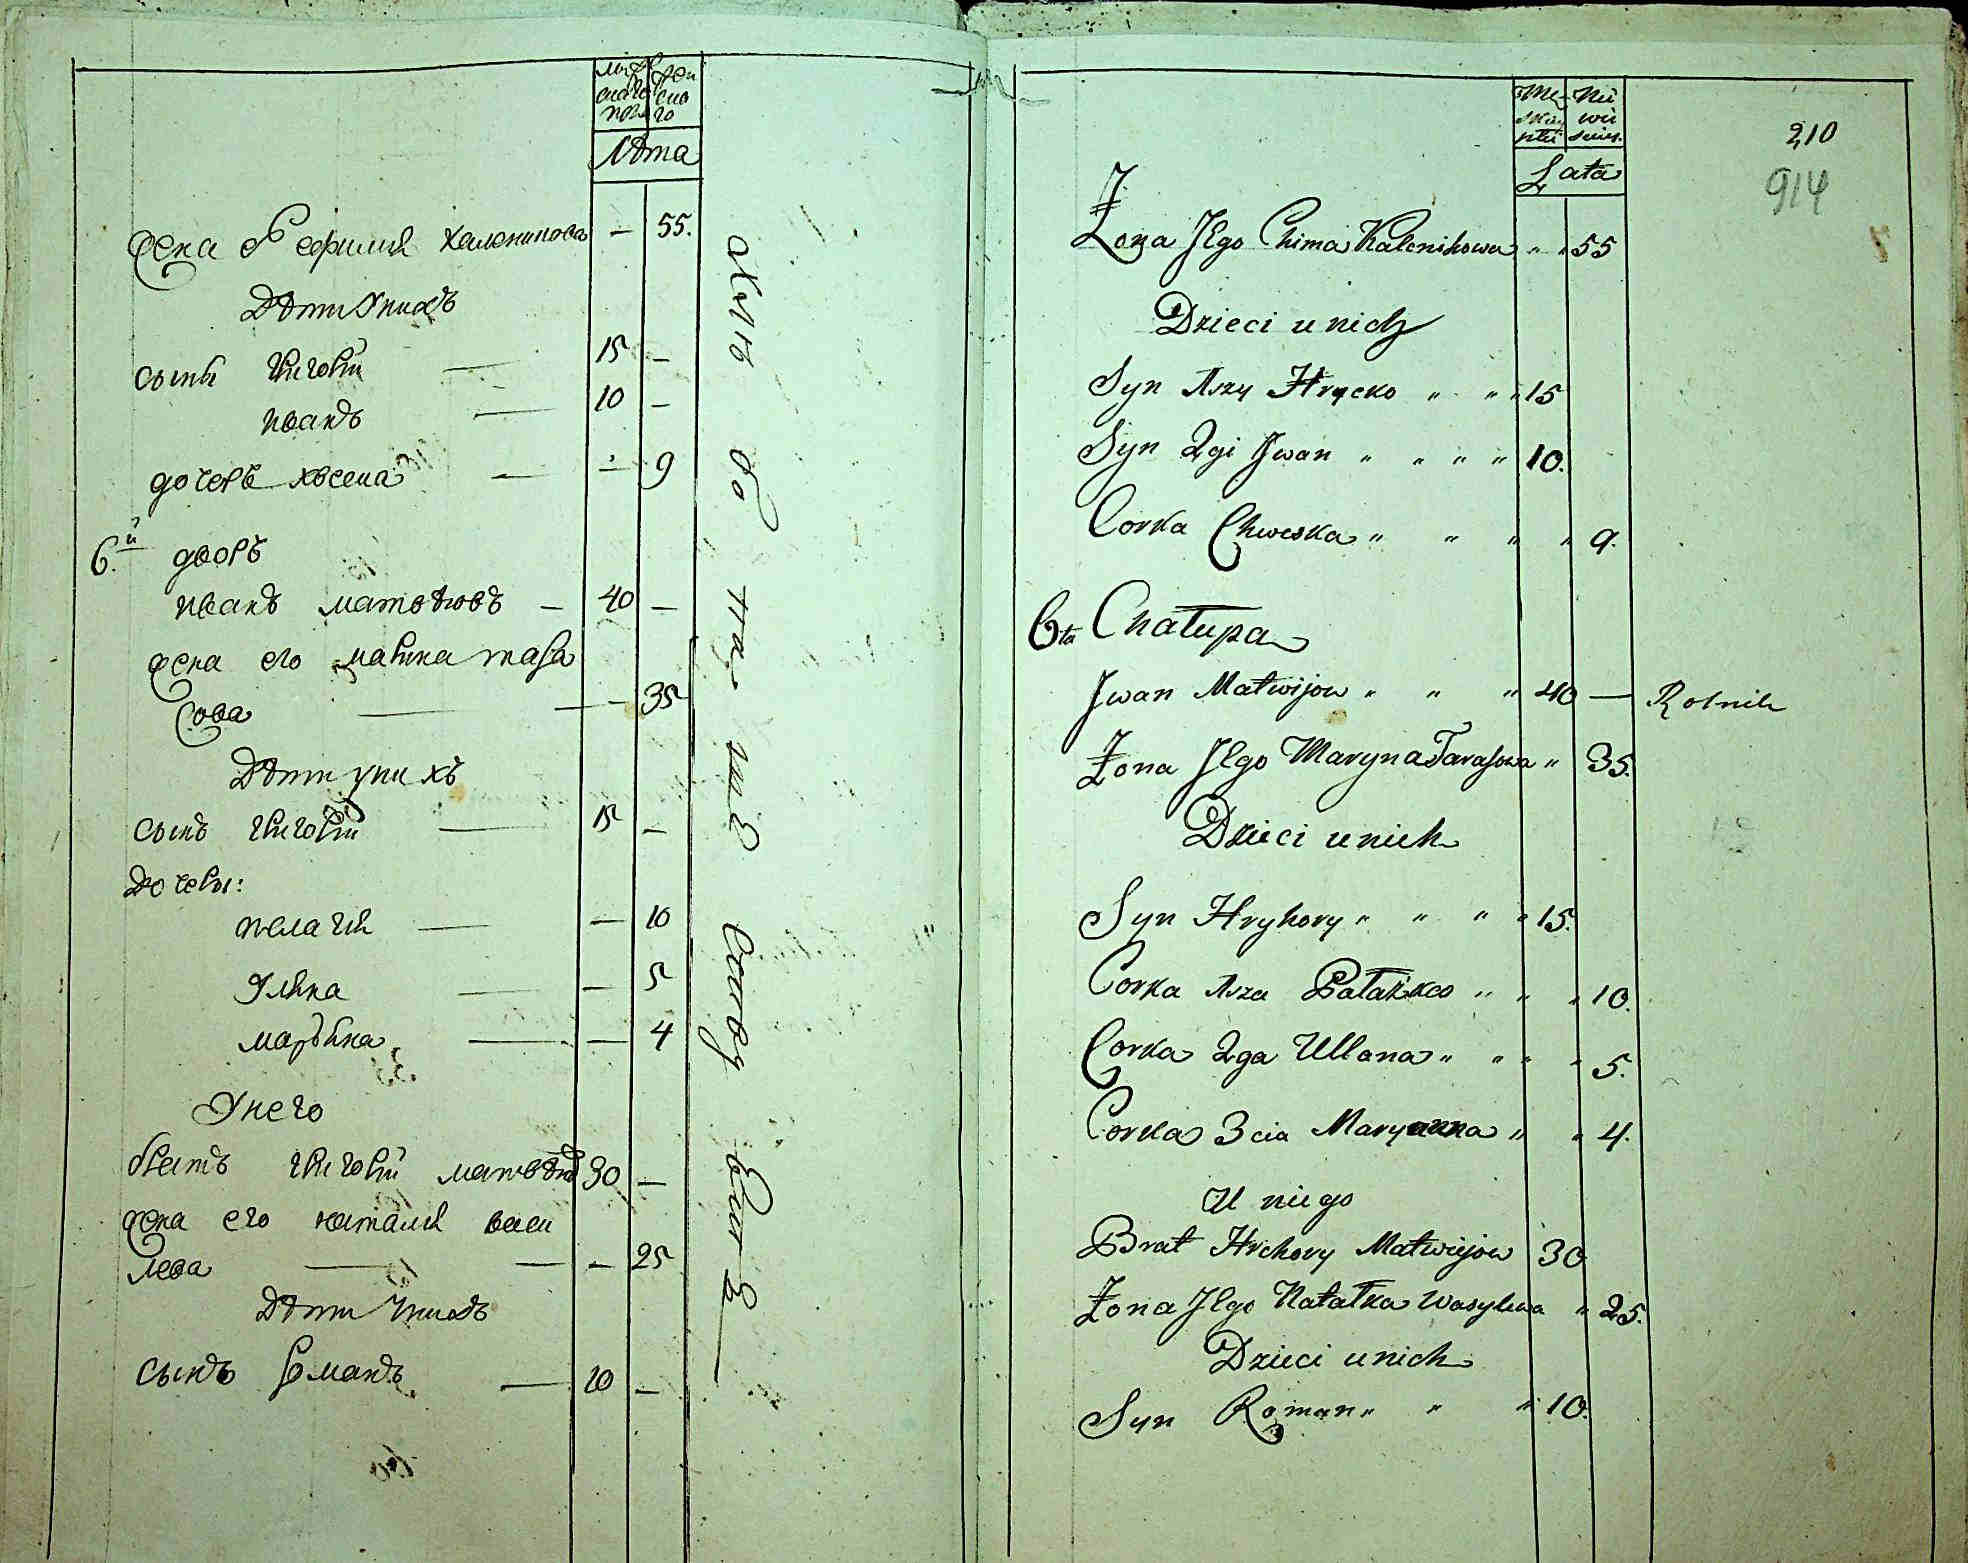 Лѣта
жена Ефимия Каленикова — 55.
Дѣти у них
сынъ Григорій — 15 —
Иванъ — 10 —
дочерь Хвесна — — 9
6.й дворъ
Иванъ Матвѣювъ — 40 —
жена его Марина Тара
сова — — 35
Дѣти у нихъ
сынъ Григорій — 15 —
Дочеры:
Пелагия — — 10
Уляна — — 5
Маръяна — — 4
У него
братъ Григорій Матвѣю 30 —
жена его Наталия Васи
лева — — 25
Дѣти у нихъ
сынъ Романъ — 10 —
Lata
210
914
Żona Jego Chima Kalenikowa " " 55
Dzieci u nich
Syn 1szy Hrycko " " " 15
Syn 2gi Jwan " " " " 10.
Corka Chweska " " " " 9.
6ta Chałupa
Jwan Matwijow " " " 40 — Rolnik
Żona Jego Maryna Tarasowa " 35.
Dzieci u nich
Syn Hryhory " " " " 15.
Corka 1sza Pałażka " " " 10.
Corka 2ga Ullana " " " " 5.
Corka 3cia Maryanna " " 4.
U niego
Brat Hrehory Matwiejow 30
Żona Jego Natałka Wasylewa " 25.
Dzieci u nich
Syn Roman " " " 10.